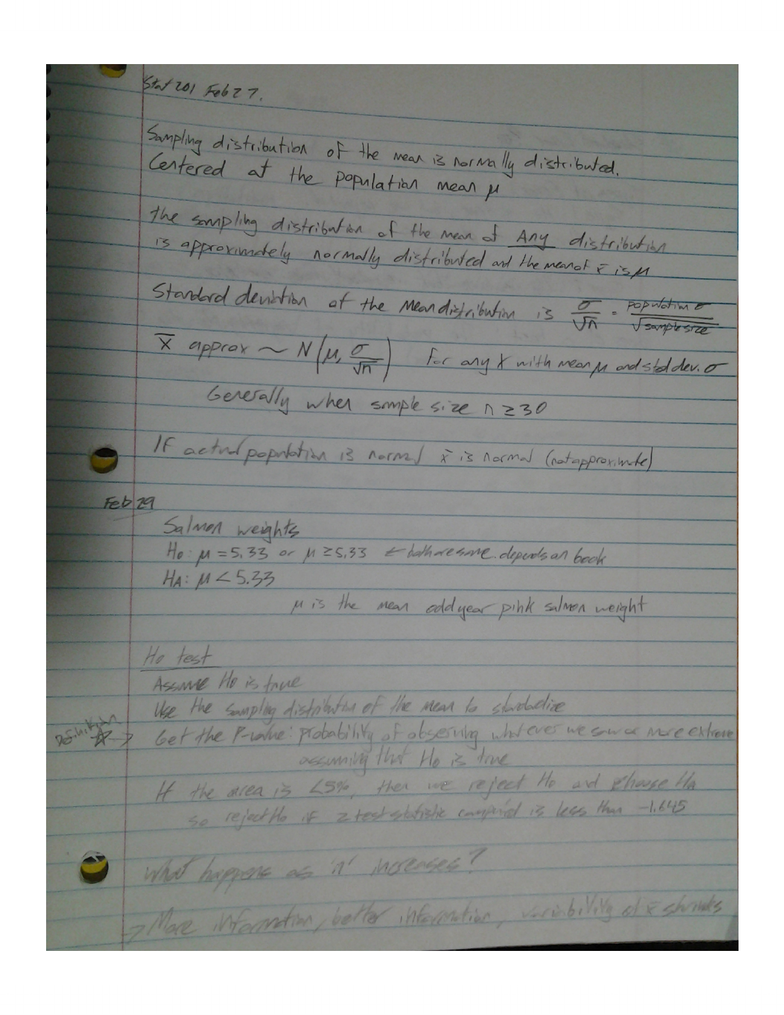 Stat 201 Feb 27.
Sampling distribution of the mean is normally distributed.
Centered at the population mean μ
the sampling distribution of the mean of Any distribution
is approximately normally distributed and the mean of x̄ is μ
Standard deviation of the Mean distribution is σ/√n = population σ/√sample size
X̄ approx ~ N(μ, σ/√n) for any X with mean μ and std dev. σ
Generally when sample size n ≥ 30
If actual population is normal x̄ is normal (not approximate)
Feb 29
Salmon weights
H₀: μ = 5.33 or μ ≥ 5.33 ← both are same. depends on book
HA: μ < 5.33
μ is the mean odd year pink salmon weight
H₀ test
Assume H₀ is true
Use the sampling distribution of the mean to standardize
Definition ☆ → Get the P-value: probability of observing whatever we saw or more extreme
assuming that H₀ is true
If the area is <5%, then we reject H₀ and choose HA
so reject H₀ if z test statistic computed is less than -1.645
What happens as 'n' increases?
→ More information, better information, variability of x̄ shrinks